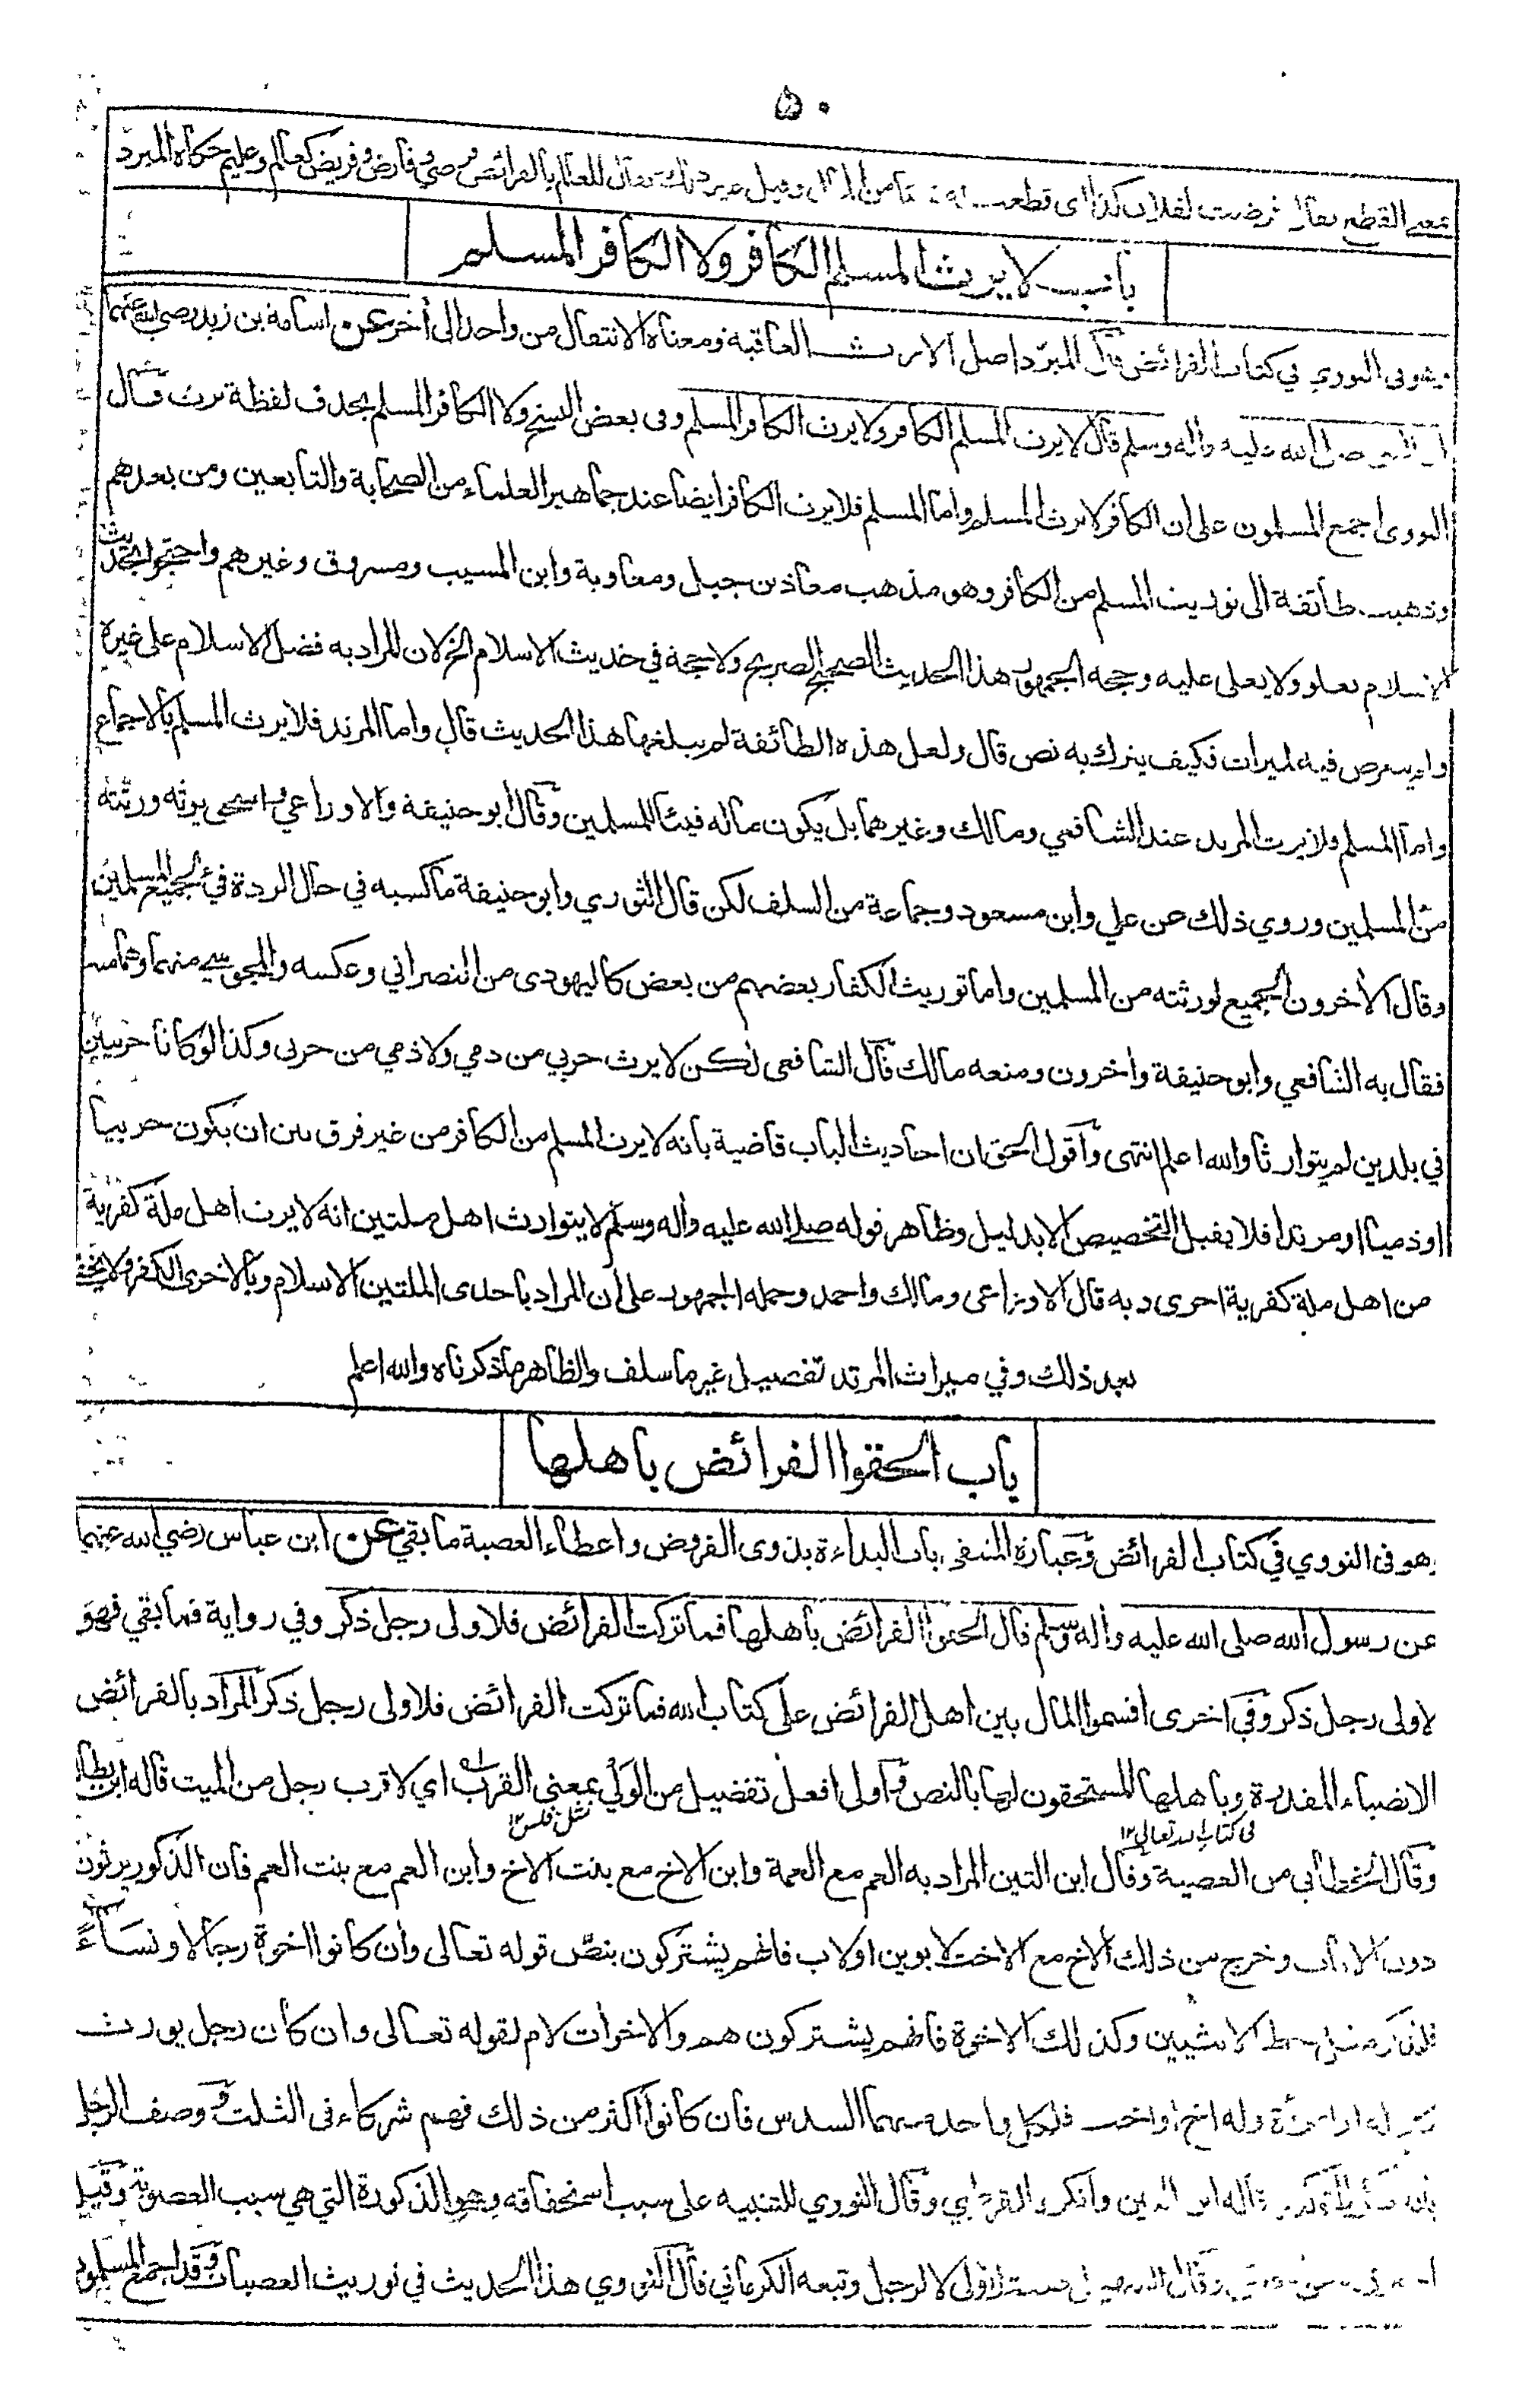 ٥٠
بمعنى القطع يقال فرضت لفلان كذا اى قطعت له من المال وقيل غير ذلك ويقال للعالم بالفرائض فرضي وفارض وفريض كعالم وعليم حكاه المبرد
باب لا يرث المسلم الكافر ولا الكافر المسلم
وهو في النووي في كتاب الفرائض قال المبرد اصل الارث العاقبة ومعناه الانتقال من واحد الى أخر عن اسامة بن زيد رضي الله عنهما
ان النبي صلى الله عليه وأله وسلم قال لا يرث المسلم الكافر ولا يرث الكافر المسلم وفي بعض النسخ ولا الكافر المسلم بحذف لفظة يرث قال
النووي اجمع المسلمون على ان الكافر لا يرث المسلم واما المسلم فلا يرث الكافر ايضا عند جماهير العلماء من الصحابة والتابعين ومن بعدهم
وذهبت طائفة الى توريث المسلم من الكافر وهو مذهب معاذ بن جبل ومعاوية وابن المسيب ومسروق وغيرهم واحتجوا بحديث
الاسلام يعلو ولا يعلى عليه وحجة الجمهور هذا الحديث الصحيح الصريح ولا حجة في حديث الاسلام الخ لان المراد به فضل الاسلام على غيره
ولم يتعرض فيه لميراث فكيف يترك به نص قال ولعل هذه الطائفة لم يبلغها هذا الحديث قال واما المرتد فلا يرث المسلم بالاجماع
واما المسلم فلا يرث المرتد عند الشافعي ومالك وغيرهما بل يكون ماله فيئا للمسلمين وقال ابو حنيفة والاوزاعي واسحق يرثه ورثته
من المسلمين وروي ذلك عن علي وابن مسعود وجماعة من السلف لكن قال الثوري وابو حنيفة ما كسبه في حال الردة فيئ لجميع المسلمين
وقال الأخرون الجميع لورثته من المسلمين واما توريث الكفار بعضهم من بعض كاليهودى من النصراني وعكسه والمجوسي منهما وهما منه
فقال به الشافعي وابو حنيفة وأخرون ومنعه مالك قال الشافعى لكن لا يرث حربي من ذمي ولا ذمي من حربي وكذا لو كانا حربيين
في بلدين لم يتوارثا والله اعلم انتهى وأقول الحق ان احاديث الباب قاضية بانه لا يرث المسلم من الكافر من غير فرق بين ان يكون حربيا
او ذميا او مرتدا فلا يقبل التخصيص الا بدليل وظاهر قوله صلى الله عليه وأله وسلم لا يتوارث اهل ملتين انه لا يرث اهل ملة كفرية
من اهل ملة كفرية اخرى وبه قال الاوزاعى ومالك واحمد وحمله الجمهور على ان المراد باحدى الملتين الاسلام وبالاخرى الكفر ولا يخفى
بعد ذلك وفي ميراث المرتد تفصيل غير ما سلف والظاهر ما ذكرناه والله اعلم
باب الحقوا الفرائض باهلها
وهو في النووي في كتاب الفرائض وعبارة المنتقى باب البداءة بذوى الفروض واعطاء العصبة ما بقي عن ابن عباس رضي الله عنهما
عن رسول الله صلى الله عليه وأله وسلم قال الحقوا الفرائض باهلها فما تركت الفرائض فلاولى رجل ذكر وفي رواية فما بقي فهو
لاولى رجل ذكر وفي اخرى اقسموا المال بين اهل الفرائض على كتاب الله فما تركت الفرائض فلاولى رجل ذكر المراد بالفرائض
الانصباء المقدرة وباهلها المستحقون لها بالنص واولى افعل تفضيل من الولي بمعنى القرب اي لاقرب رجل من الميت قاله ابن بطال
في كتاب الله تعالى ١٢
مثل فلس ١٢
وقال الخطابي من العصبة وقال ابن التين المراد به العم مع العمة وابن الاخ مع بنت الاخ وابن العم مع بنت العم فان الذكور يرثون
دون الاناث وخرج من ذلك الاخ مع الاخت لابوين او لاب فانهم يشتركون بنص قوله تعالى وان كانوا اخوة رجالا ونساءً
فللذكر مثل حظ الانثيين وكذلك الاخوة فانهم يشتركون هم والاخوات لام لقوله تعالى وان كان رجل يورث
كلالة او امرأة وله اخ او اخت فلكل واحد منهما السدس فان كانوا اكثر من ذلك فهم شركاء فى الثلث ووصف الرجل
بانه ذكر قاله ابن التين وانكره القرطبي وقال النووي للتنبيه على سبب استحقاقه وهو الذكورة التي هي سبب العصوبة وقيل
وقال السهيلي لاولى لا لرجل وتبعه الكرماني قال النووي هذا الحديث في توريث العصبات وقد اجمع المسلمون